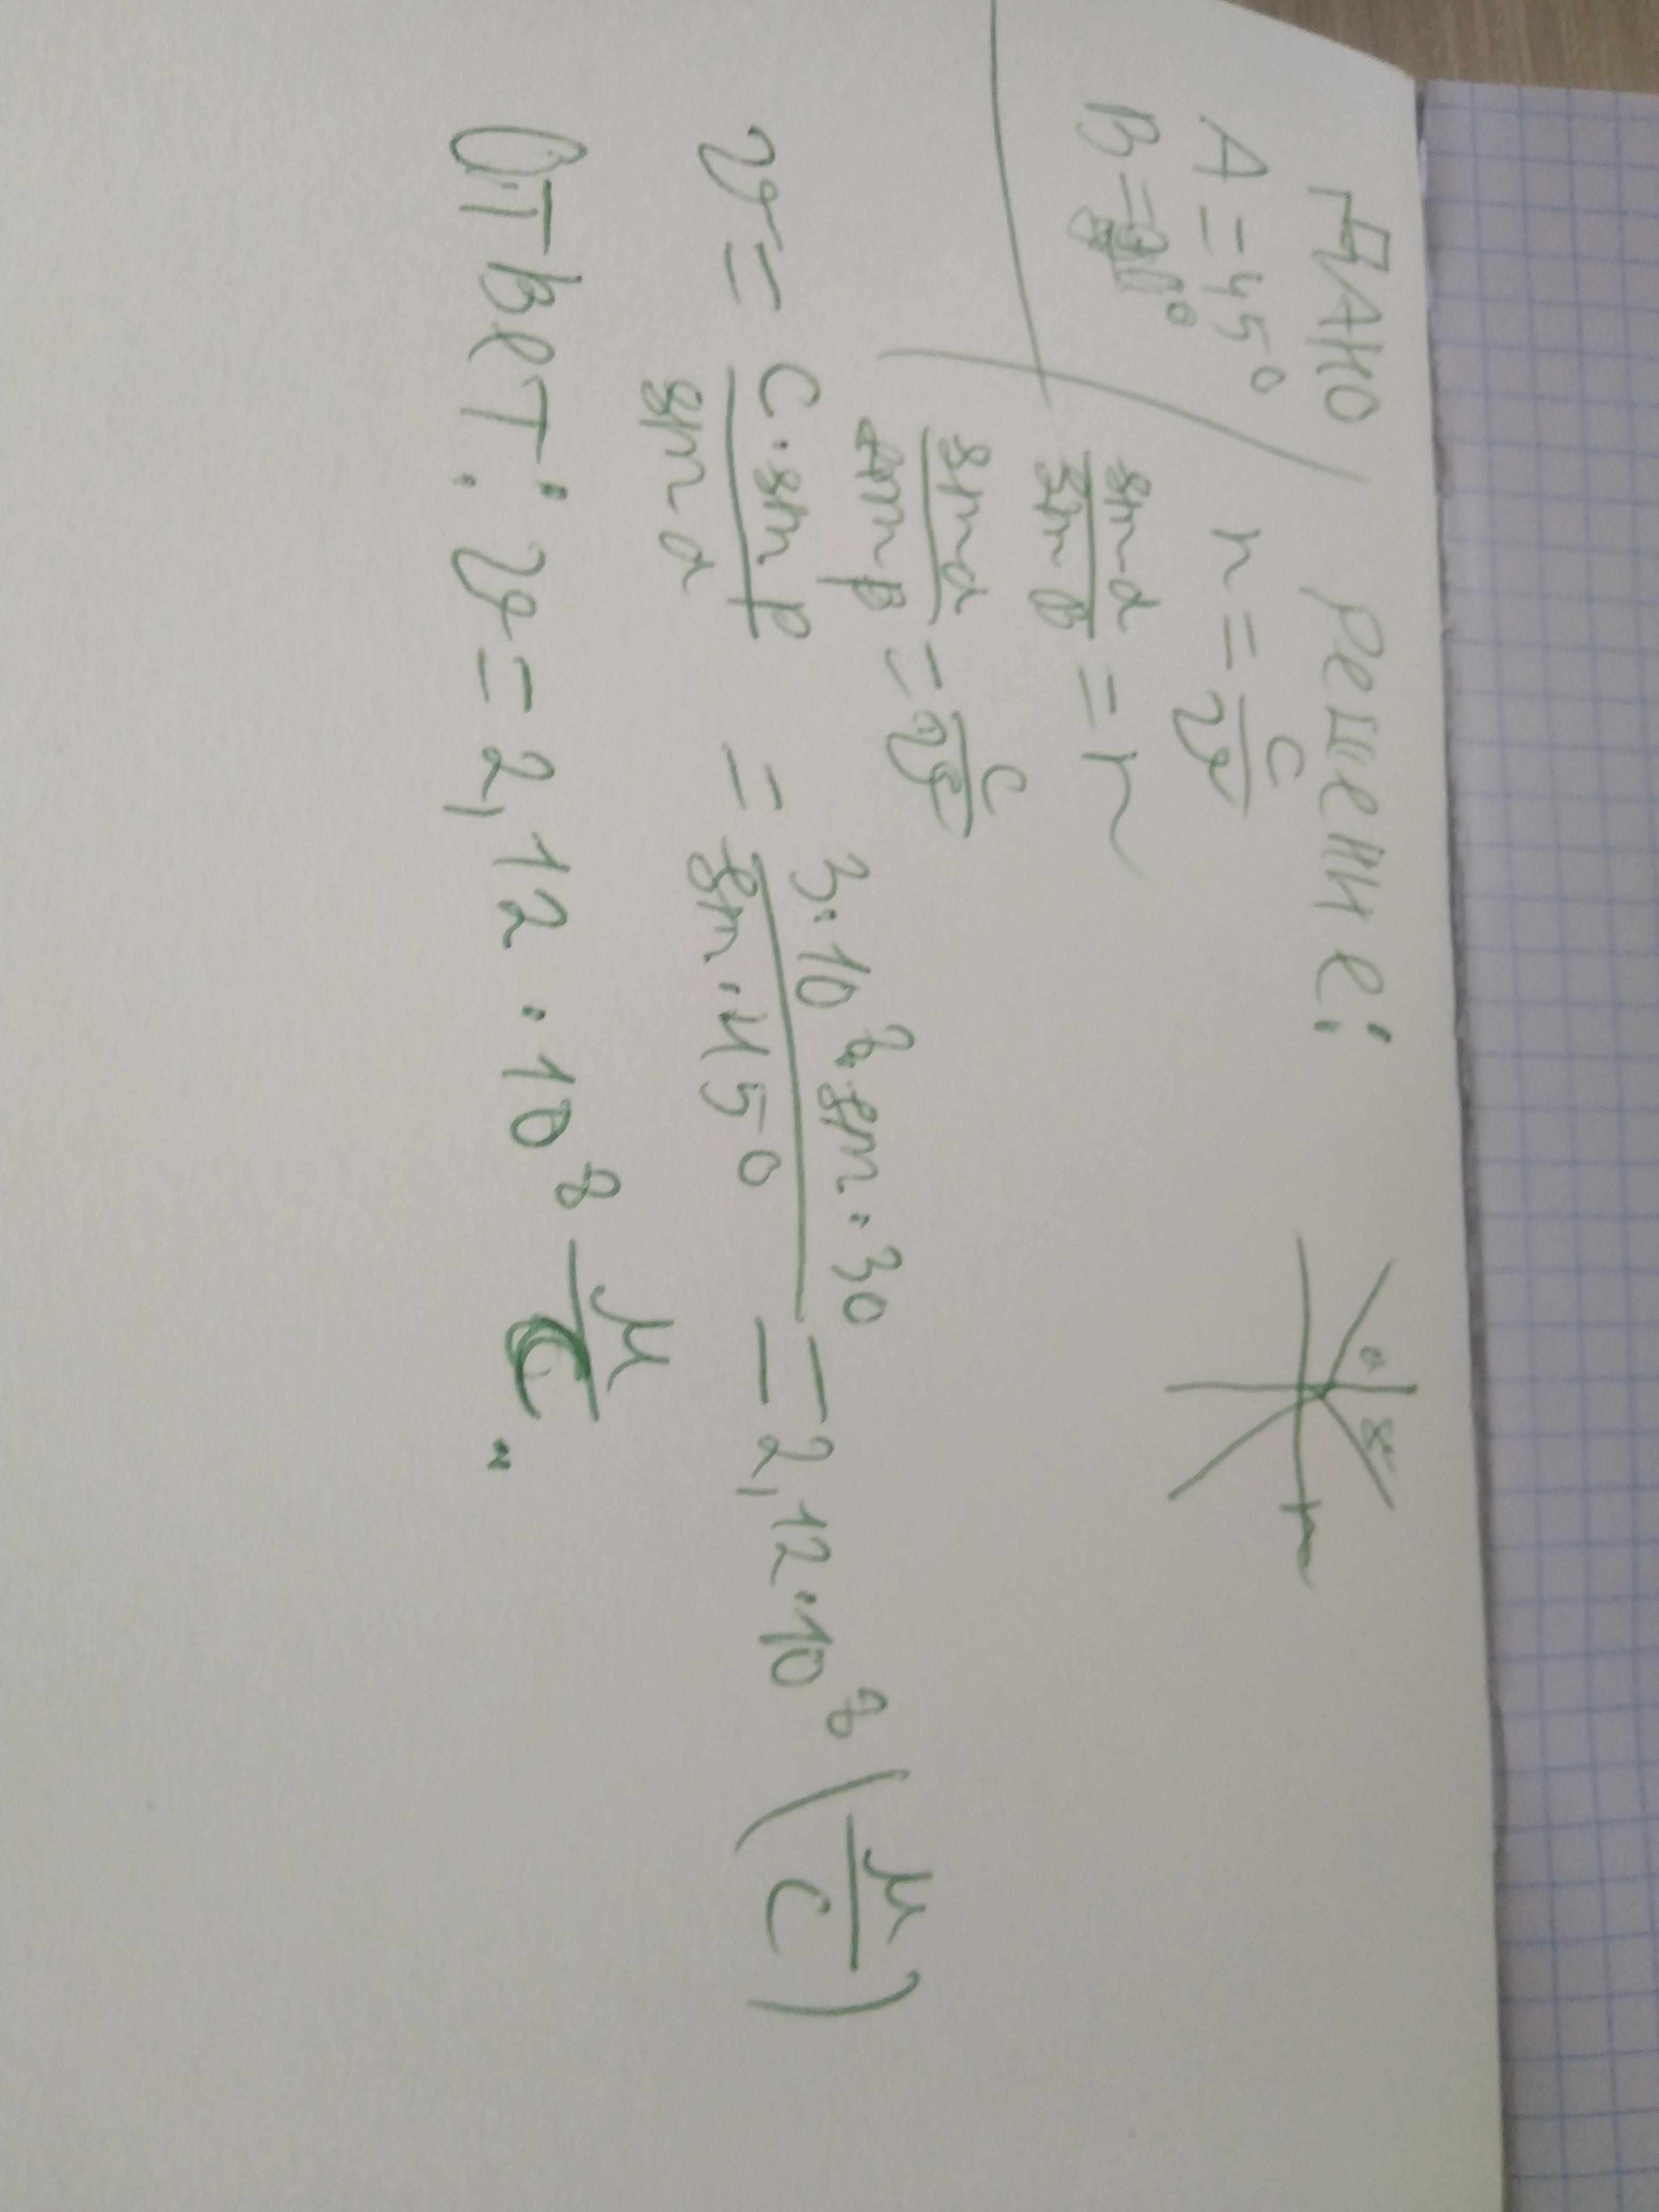 ДАНО
A = 45°
B = 30°
Решение:
n = c/υ
sin α / sin β = n
sin α / sin β = c/υ
υ = c · sin β / sin α = 3 · 10⁸ · sin · 30 / sin · 45° = 2,12 · 10⁸ (м/с)
Ответ: υ = 2,12 · 10⁸ м/с.